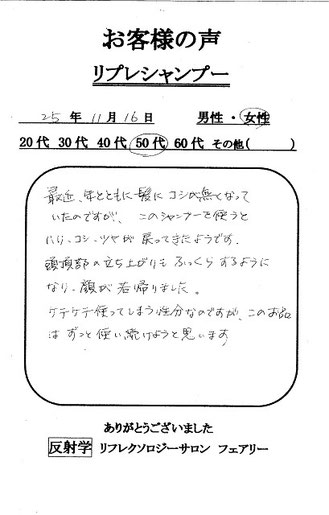 お客様の声
リプレシャンプー
25 年 11 月 16 日 男性・女性
20代 30代 40代 50代 60代 その他( )
最近、年とともに髪に コシが無くなって
いたのですが、このシャンプーを使うと
ハリ、コシ、ツヤが 戻ってきたようです。
頭頂部の立ち上がりも ふっくらするように
なり、顔が若帰りました。
ケチケチ使ってしまう性分なのですが、このお品
は ずっと使い続けようと思います
ありがとうございました
反射学 リフレクソロジーサロン フェアリー